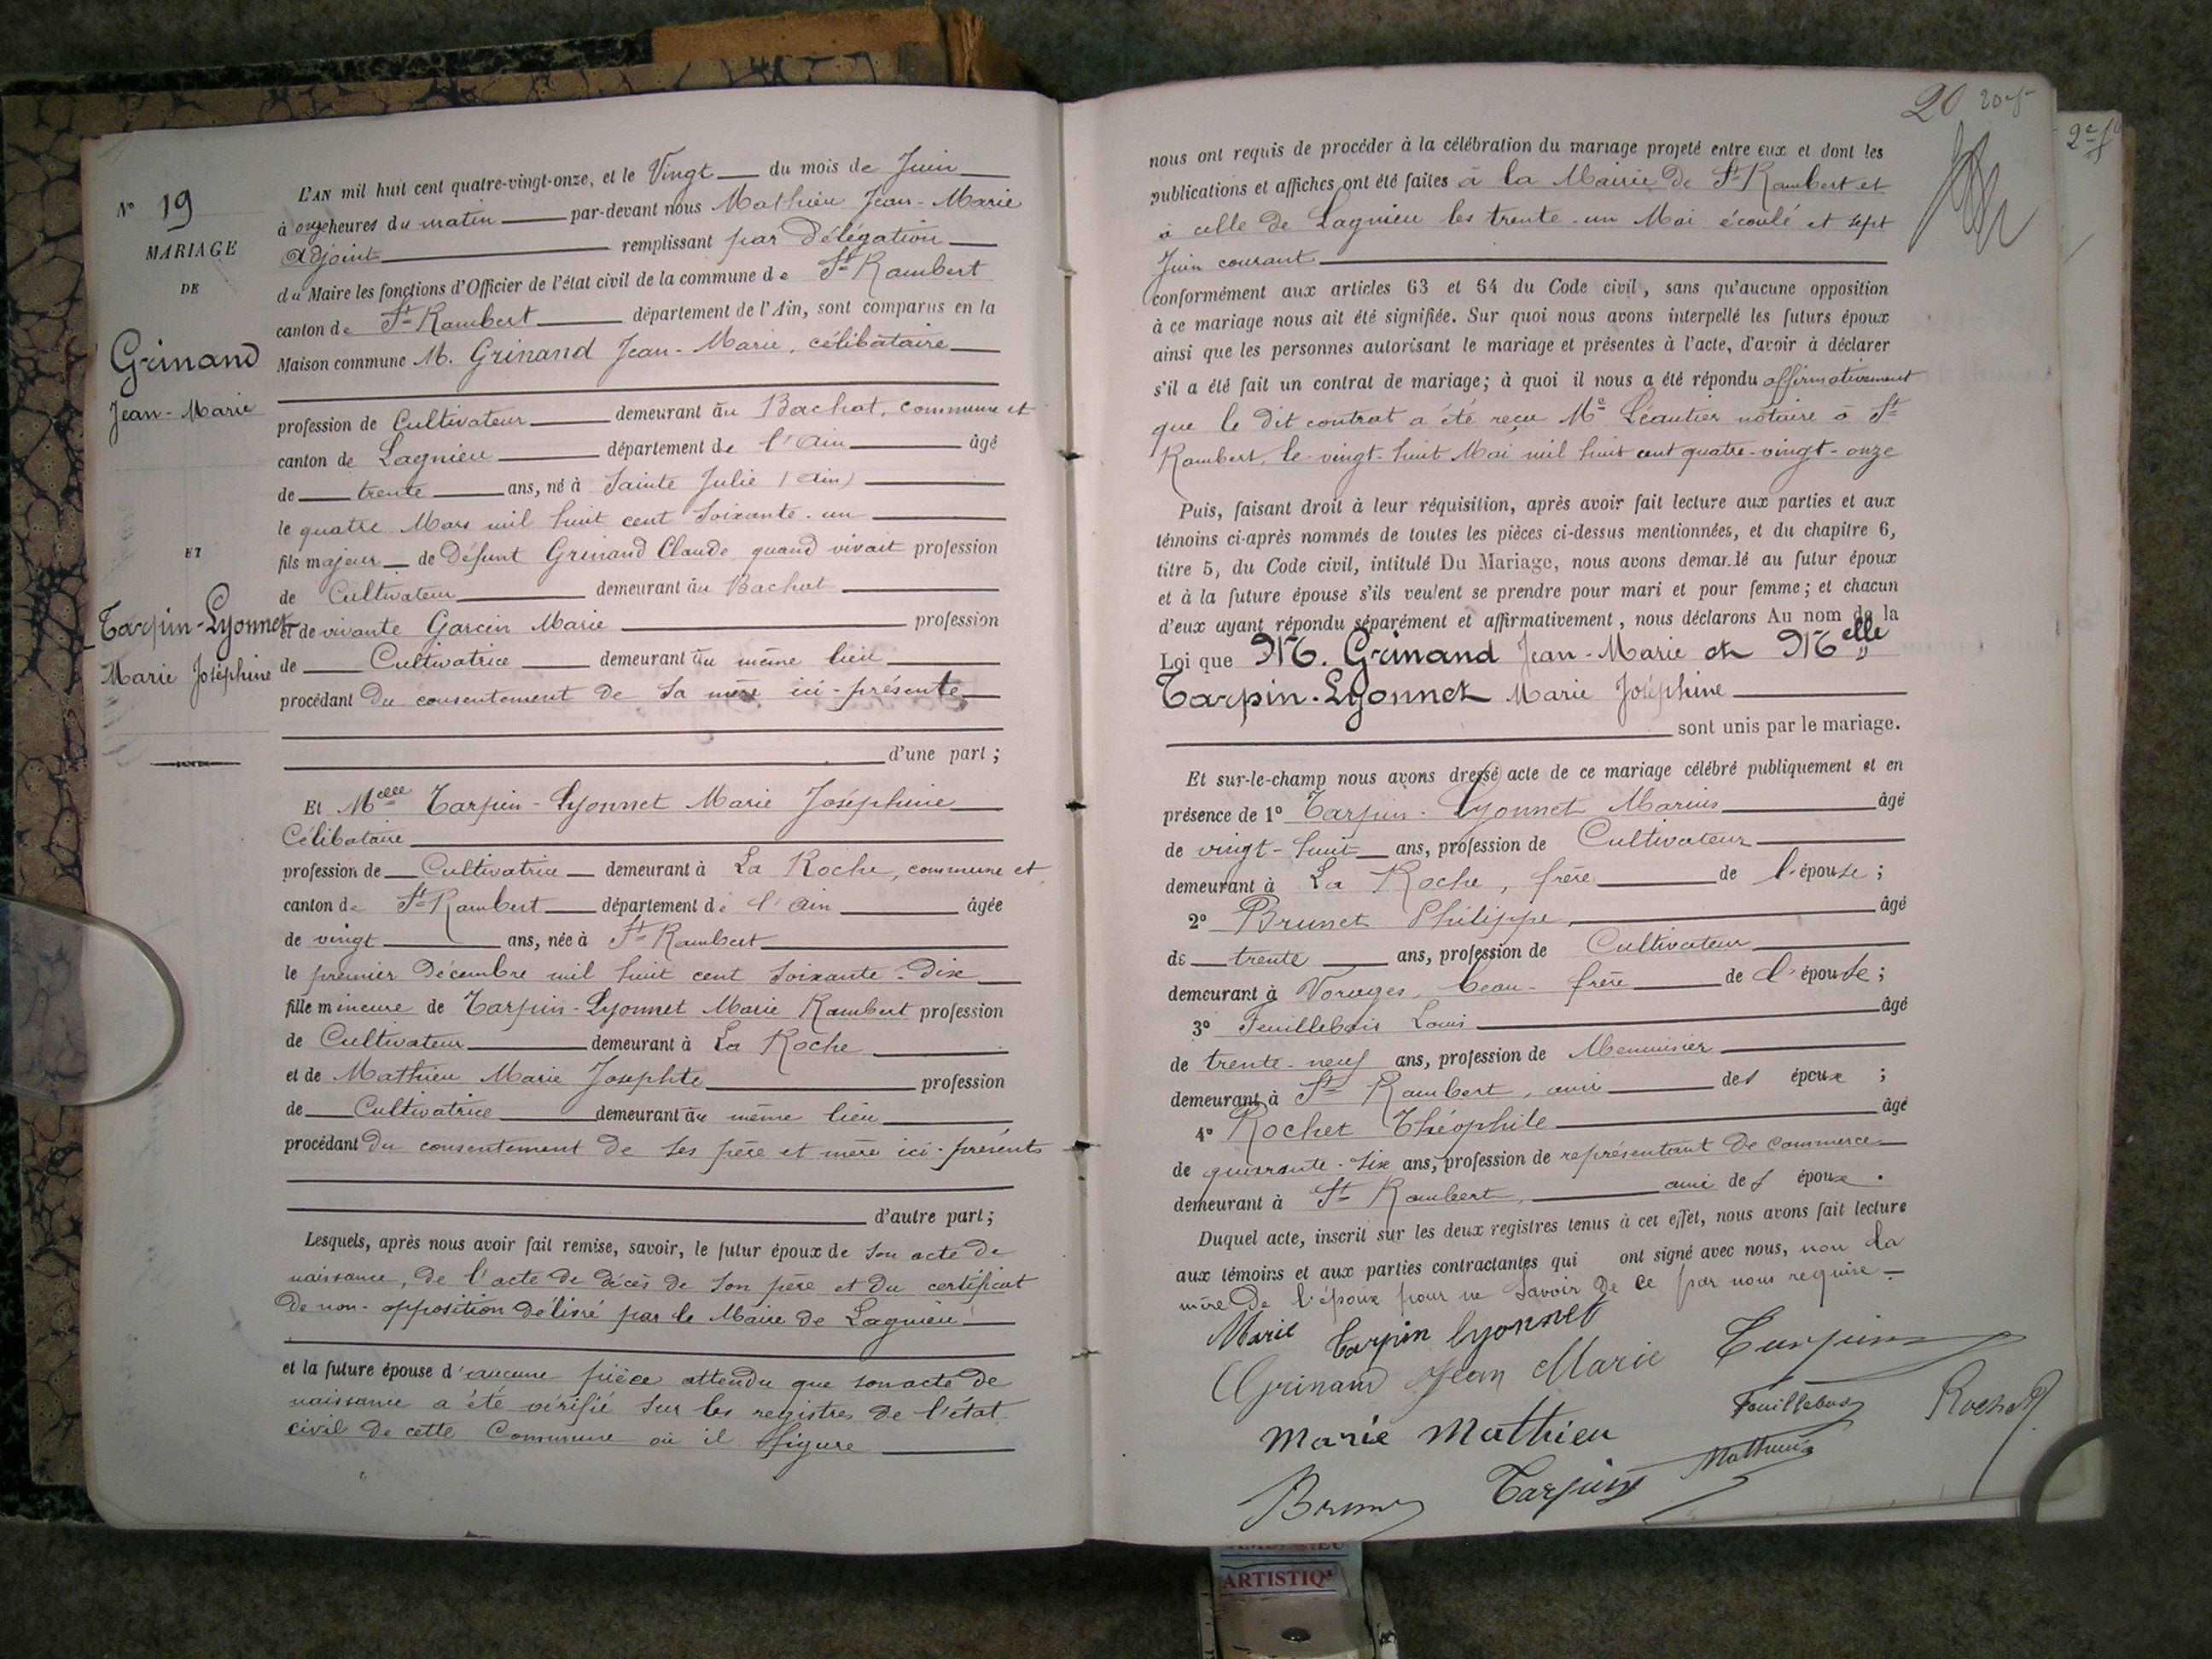 N° 19
MARIAGE
DE
Grinand
Jean-Marie
ET
Tarpin-Lyonnet
Marie Joséphine
L'AN mil huit cent quatre-vingt-onze, et le Vingt du mois de Juin
à onze heures du matin par-devant nous Mathieu Jean-Marie
Adjoint remplissant par Délégation
du Maire les fonctions d'Officier de l'état civil de la commune de St Rambert
canton de St Rambert département de l'Ain, sont comparus en la
Maison commune M. Grinand Jean-Marie, célibataire
profession de Cultivateur demeurant au Bachat, commune et
canton de Lagnieu département de l'Ain âgé
de trente ans, né à Sainte Julie (Ain)
le quatre Mars mil huit cent soixante-un
fils majeur de Défunt Grinand Claude quand vivait profession
de Cultivateur demeurant au Bachat
et de vivante Garcin Marie profession
de Cultivatrice demeurant au même lieu
procédant du consentement de sa mère ici-présente
d'une part;
Et Melle Tarpin-Lyonnet Marie Joséphine
Célibataire
profession de Cultivatrice demeurant à La Roche, commune et
canton de St Rambert département de l'Ain âgée
de vingt ans, née à St Rambert
le premier Décembre mil huit cent soixante-dix
fille mineure de Tarpin-Lyonnet Marie Rambert profession
de Cultivateur demeurant à La Roche
et de Mathieu Marie Josephte profession
de Cultivatrice demeurant au même lieu
procédant du consentement de ses père et mère ici-présents
d'autre part;
Lesquels, après nous avoir fait remise, savoir, le futur époux de son acte de
naissance, de l'acte de décès de son père et du certificat
de non-opposition délivré par le Maire de Lagnieu
et la future épouse d'aucune pièce attendu que son acte de
naissance a été vérifié sur les registres de l'état
civil de cette Commune où il figure
20 20
2e f
nous ont requis de procéder à la célébration du mariage projeté entre eux et dont les
publications et affiches ont été faites à la Mairie de St Rambert et
à celle de Lagnieu les trente-un Mai écoulé et sept
Juin courant
conformément aux articles 63 et 64 du Code civil, sans qu'aucune opposition
à ce mariage nous ait été signifiée. Sur quoi nous avons interpellé les futurs époux
ainsi que les personnes autorisant le mariage et présentes à l'acte, d'avoir à déclarer
s'il a été fait un contrat de mariage; à quoi il nous a été répondu affirmativement
que le dit contrat a été reçu Me Léautier notaire à St
Rambert, le vingt-huit Mai mil huit cent quatre-vingt-onze
Puis, faisant droit à leur réquisition, après avoir fait lecture aux parties et aux
témoins ci-après nommés de toutes les pièces ci-dessus mentionnées, et du chapitre 6,
titre 5, du Code civil, intitulé Du Mariage, nous avons demandé au futur époux
et à la future épouse s'ils veulent se prendre pour mari et pour femme; et chacun
d'eux ayant répondu séparément et affirmativement, nous déclarons Au nom de la
Loi que M. Grinand Jean-Marie et Melle
Tarpin-Lyonnet Marie Joséphine
sont unis par le mariage.
Et sur-le-champ nous avons dressé acte de ce mariage célébré publiquement et en
présence de 1° Tarpin-Lyonnet Marius âgé
de vingt-huit ans, profession de Cultivateur
demeurant à La Roche, frère de l'épouse;
2° Brunet Philippe âgé
de trente ans, profession de Cultivateur
demeurant à Vorages, beau-frère de l'épouse;
3° Feuillebois Louis âgé
de trente-neuf ans, profession de Menuisier
demeurant à St Rambert, ami des époux;
4° Rochet Théophile âgé
de quarante-six ans, profession de représentant de commerce
demeurant à St Rambert, ami des époux.
Duquel acte, inscrit sur les deux registres tenus à cet effet, nous avons fait lecture
aux témoins et aux parties contractantes qui ont signé avec nous, non la
mère de l'époux pour ne savoir de ce par nous requise
Marie Tarpin lyonnet
Grinand Jean Marie Tarpin
Marie Mathieu Feuillebois Rochet
Brunet Tarpin Mathieu
ARTISTIQ